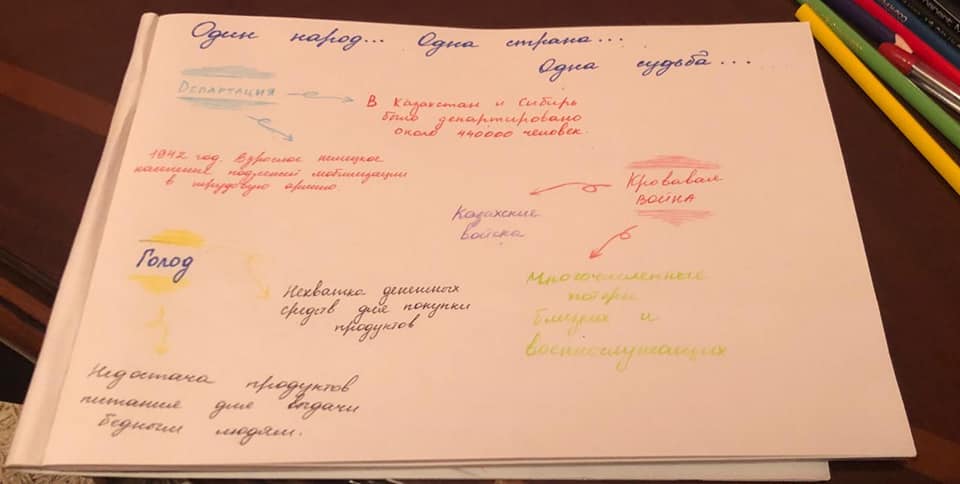 Один народ... Одна страна...
Одна судьба...
Департация
В Казахстан и Сибирь
было департировано
около 440000 человек.
1942 год. Взрослое немецкое
население подлежит мобилизации
в трудовую армию.
Кровавая
война
Казахские
войска
Многочисленные
потери
близких и
военнослужащих
Голод
Нехватка денежных
средств для покупки
продуктов
Недостача продуктов
питания для выдачи
бедным людям.